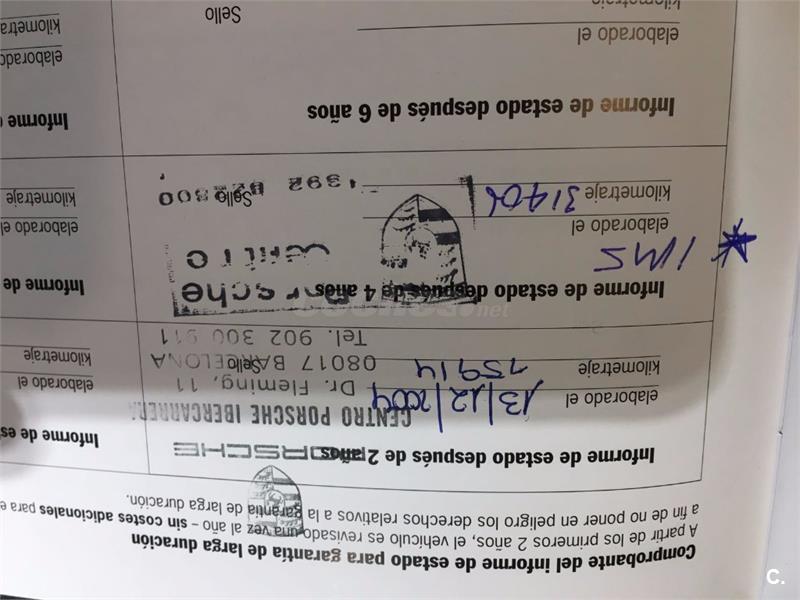 Comprobante del informe de estado para garantía de larga duración
A partir de los primeros 2 años, el vehículo es revisado una vez al año – sin costes adicionales para e
a fin de no poner en peligro los derechos relativos a la garantía de larga duración.
Informe de estado después de 2 años
PORSCHE
CENTRO PORSCHE IBERCARRERA
elaborado el 13/12/2004
Dr. Fleming, 11
kilometraje 15914
Sello
08017 BARCELONA
Tel. 902 300 911
Informe de estado después de 4 años
Porsche
Centro
* IMS
elaborado el
kilometraje 31406
Sello
Informe de estado después de 6 años
elaborado el
kilometraje
Sello
Informe de es
elaborado el
kilometraje
Informe de
elaborado el
kilometraje
Informe
elaborado
kilometra
C.